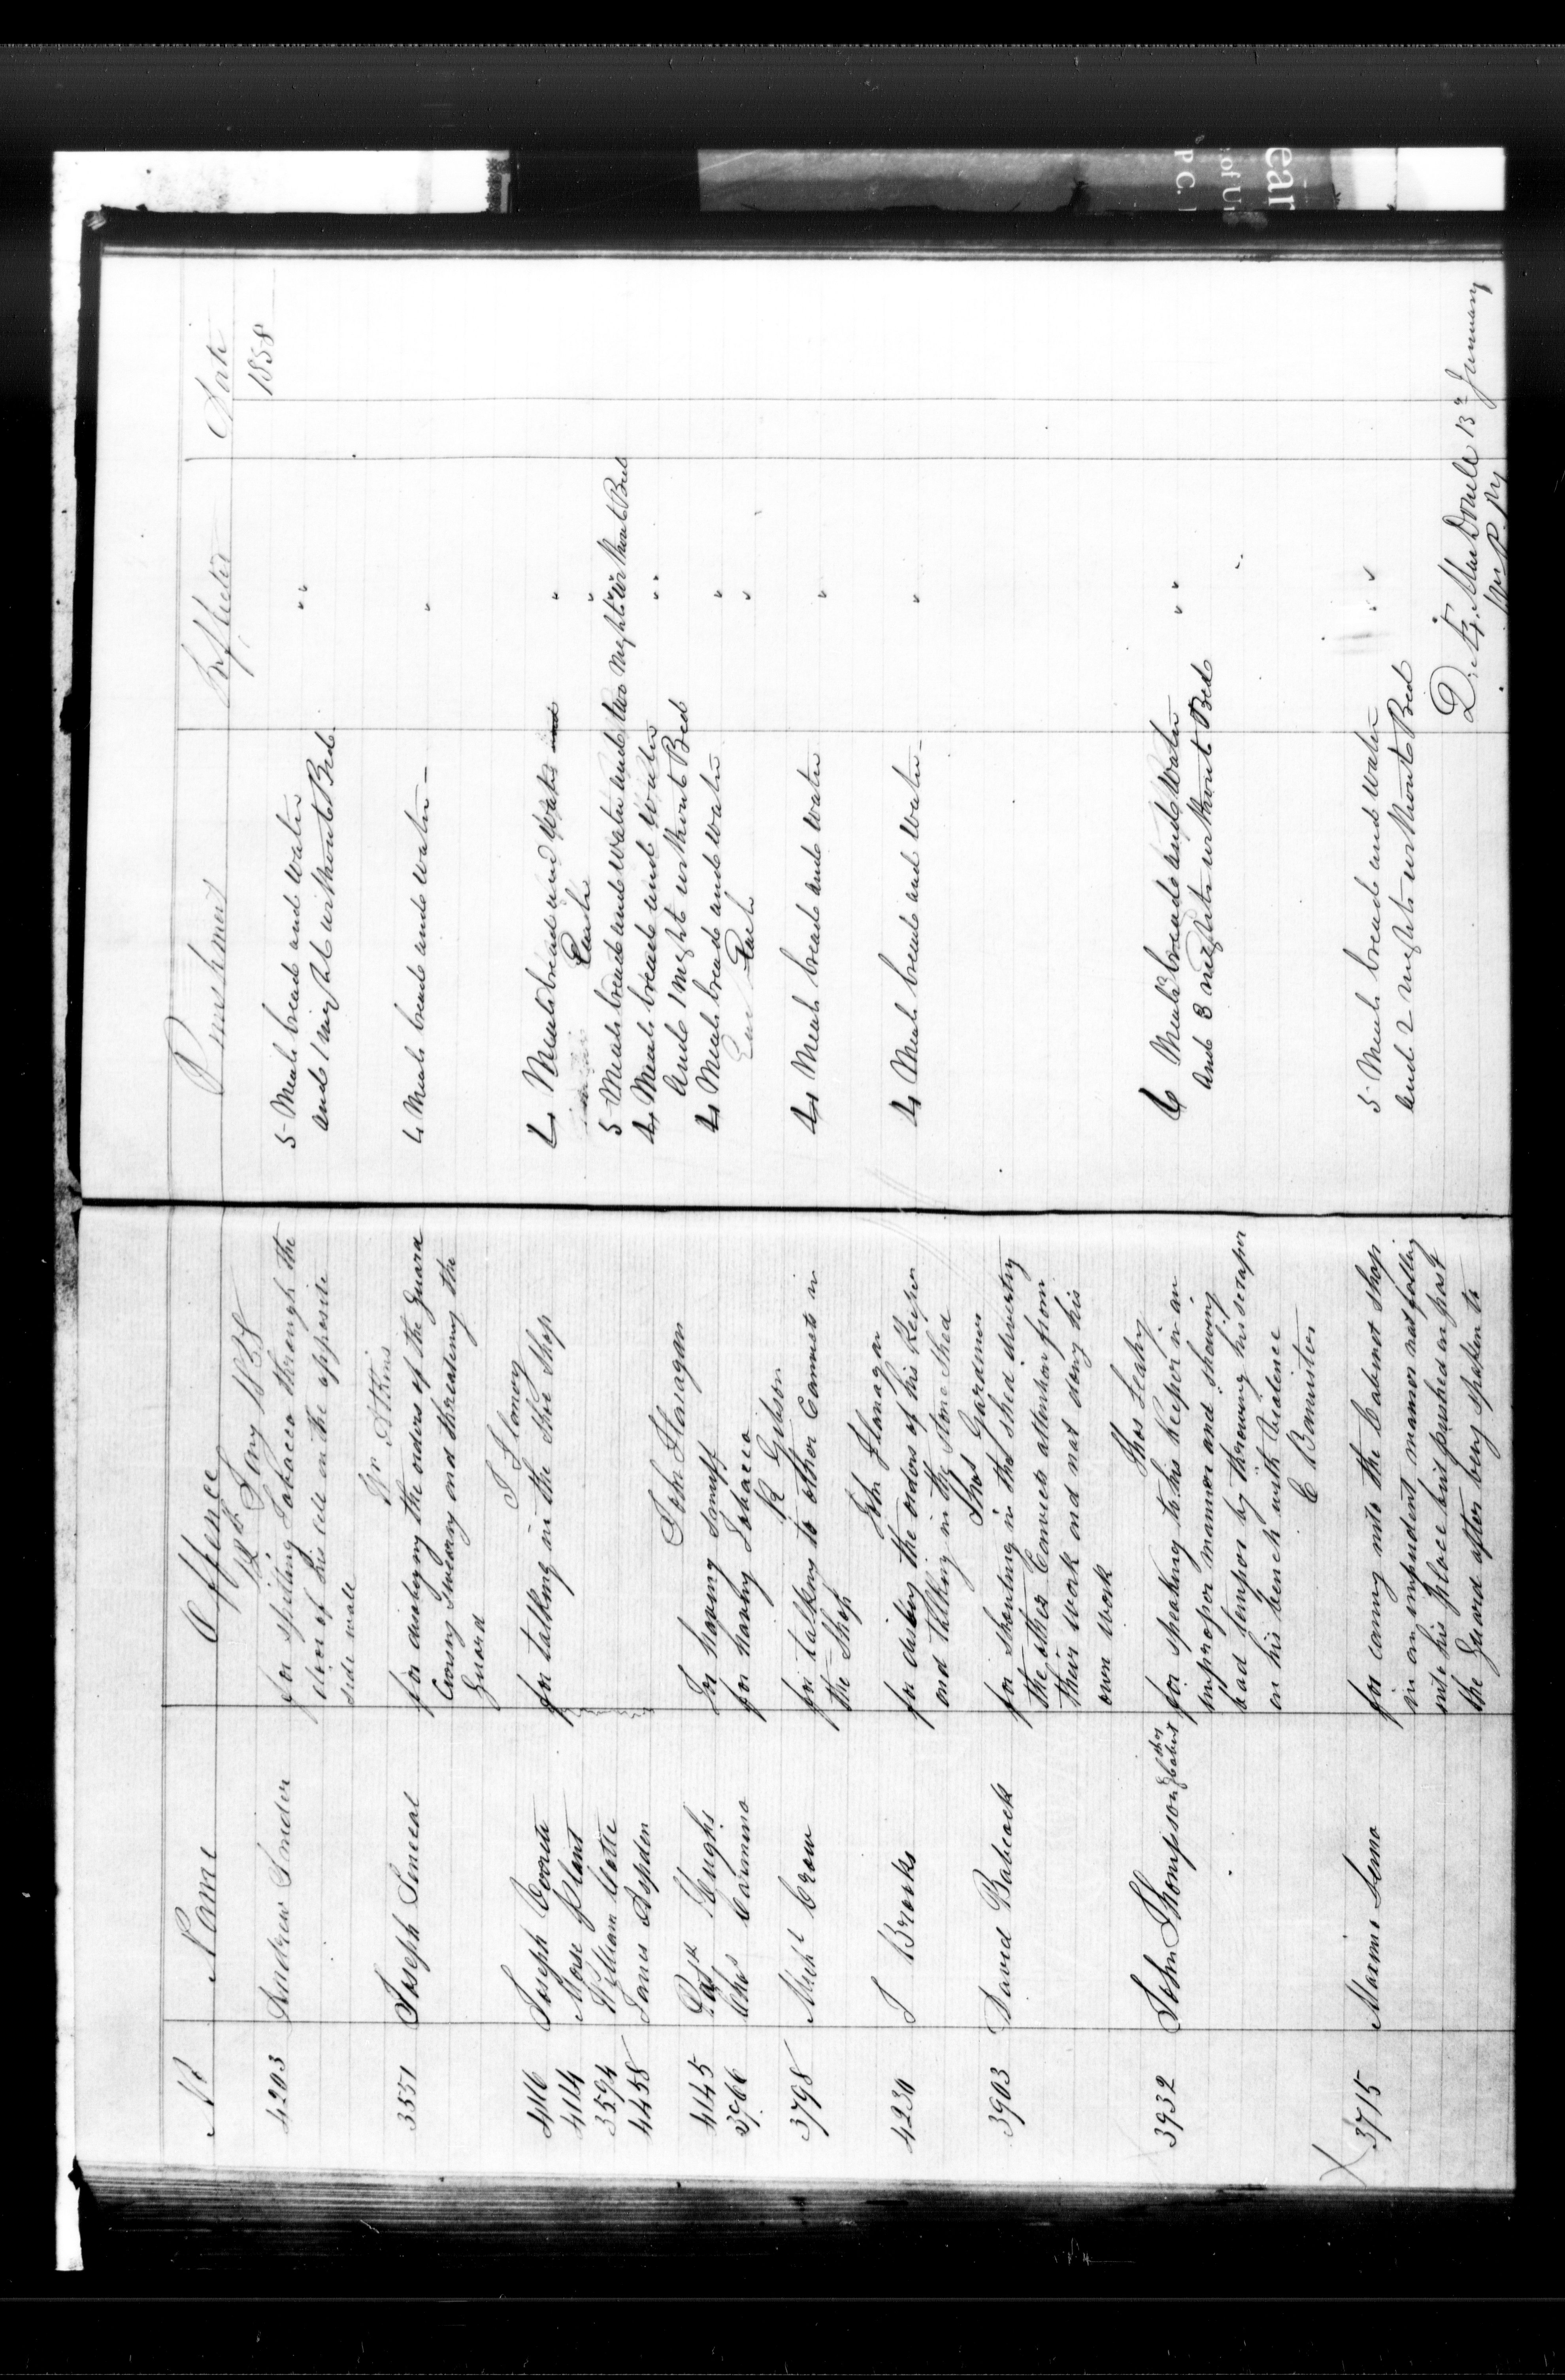 No Name Offence Punishment Date
12th Jany 1858 1858
4203 Andrew Snider for spitting Tobacco through the 5 Meals bread and water " "
door of his cell on the opposite and 1 night without Bed
side wall
Wm Atkins
3551 Joseph Senecal for disobeying the orders of the Guard 4 Meals bread and water "
Cursing Swearing and threatening the
Guard
T Slamory
4116 Joseph for talking in the Shoe Shop 4 Meals bread and Water and "
4114 Moses Plant Each
3594 William 5 Meals bread and Water and two Nights without Bed
4458 James Aspden 4 Meals bread and Water " "
John Flanagan and 1 night without Bed
4145 Patk Hughs For having Snuff 4 Meals bread and water "
3966 Chas Carmino for having Tobacco Each "
R Gibson
3798 Michl Crow for talking to other Convicts in 4 Meals bread and water "
the Shop
John Flanagan
4230 J Brooks for disobeying the orders of his Keeper 4 Meals bread and water "
and talking in the Stone Shed
Thos Gardiner
3903 David Babcock for shouting in the shed diverting
the other Convicts attention from
their work and not doing his
own work
Thos Leahy
3932 John Thompson for speaking to his Keeper in an 6 Meals bread and Water " "
improper manner and showing and 3 nights without Bed
bad temper by throwing his scraper
on his bench with violence
C Bannister
X 3715 Maxime for coming into the Cabinet Shop 5 Meals bread and water " "
in an impudent manner not falling and 2 nights without Bed
into his place but pushed on past
the Guard after being spoken to
MacDonell 13th January
ear
of U
P C.